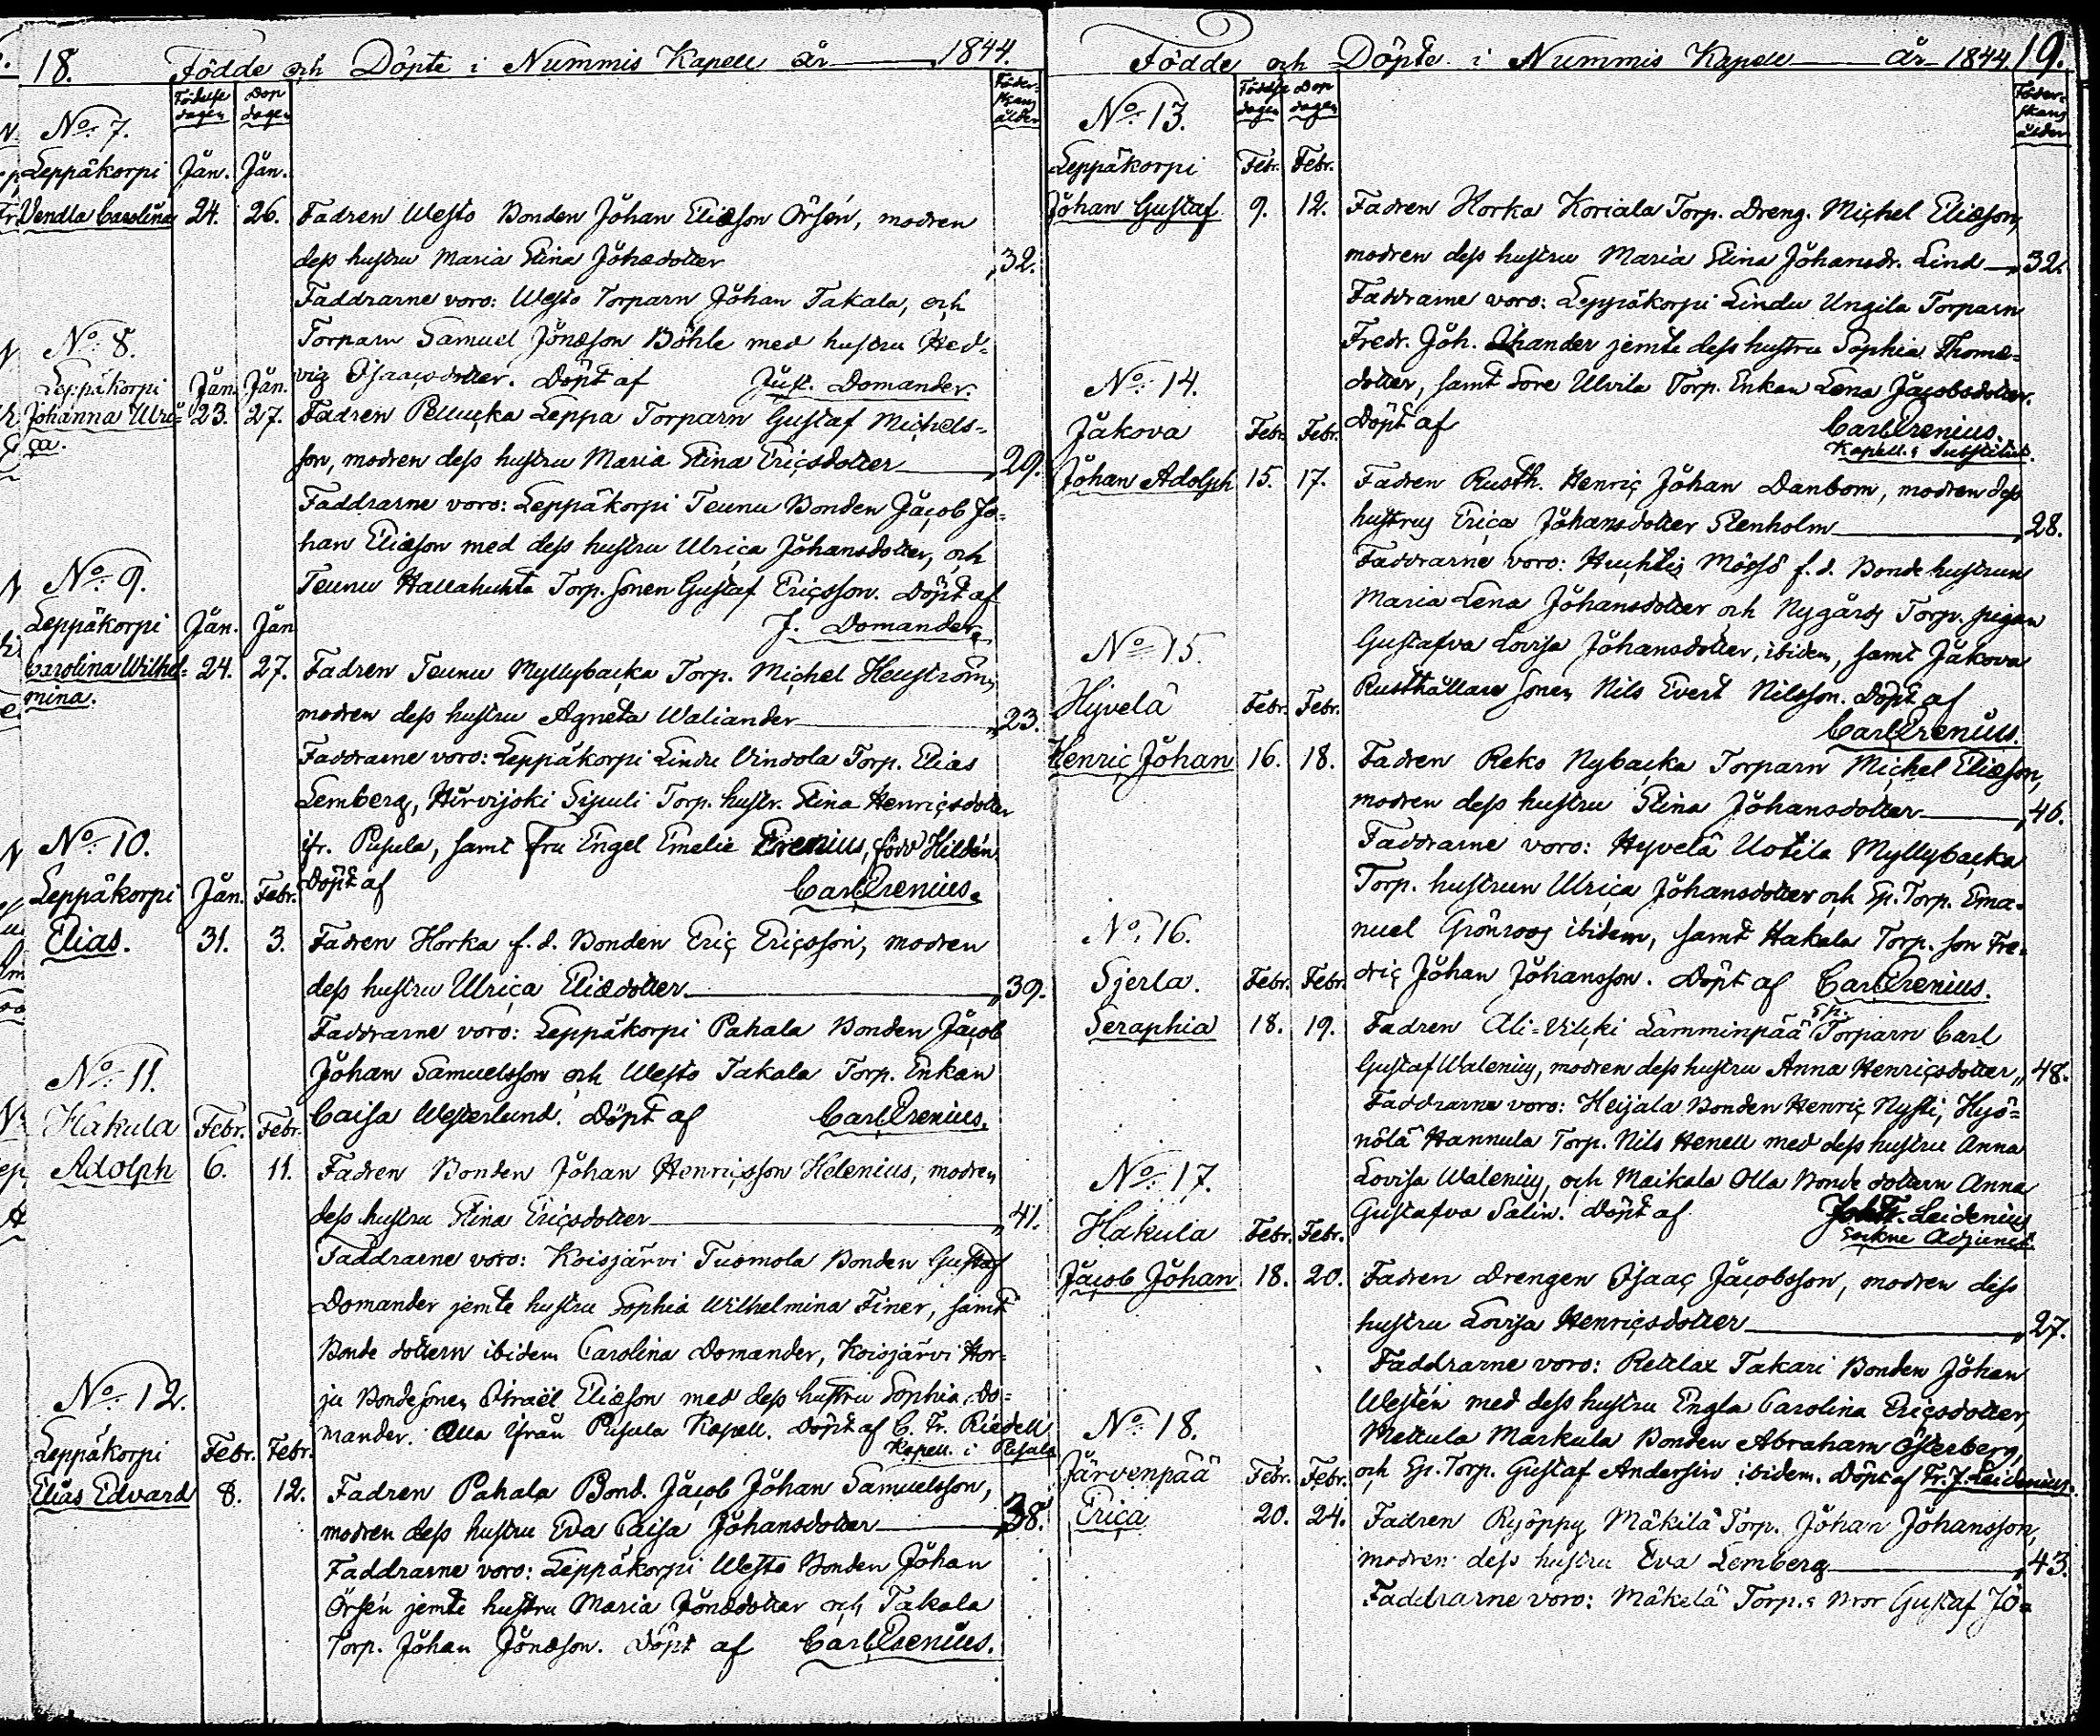 18. Födde och Döpte i Nummis Kapell år 1844.
Födelse dagen Dop dagen Föder-skans ålder
No. 7.
Leppäkorpi Jan. Jan.
Vendla Carolina 24. 26. Fadren Westo Bonden Johan Eliæson Örsén, modren
dess hustru Maria Stina Johædotter 32.
Faddrarne voro: Westo Torparn Johan Takala, och
Torparn Samuel Jonæson Böhle med hustru Hed-
vig Isaacsdotter. Döpt af Just. Domander.
No. 8.
Leppäkorpi Jan. Jan.
Johanna Ulri-
ca. 23. 27. Fadren Pellucka Leppa Torparn Gustaf Michels-
son, modren dess hustru Maria Stina Ericsdotter 29.
Faddrarne voro: Leppäkorpi Teunu Bonden Jacob Jo-
han Eliæson med dess hustru Ulrica Johansdotter, och
Teunu Hallahuhta Torp. sonen Gustaf Ericsson. Döpt af
J. Domander.
No. 9.
Leppäkorpi Jan. Jan
Carolina Wilhel-
mina. 24. 27. Fadren Teunu Myllybacka Torp. Michel Heuström,
modren dess hustru Agneta Waliander 23.
Faddrarne voro: Leppäkorpi Lindu Vindola Torp. Elias
Lemberg, Hirvijoki Sipuli Torp. hustr. Stina Henricsdotter
ifr. Pusula, samt Fru Engel Emelie Prenius, född Hildén.
Döpt af Carl Prenius.
No. 10.
Leppäkorpi Jan. Febr.
Elias. 31. 3. Fadren Horka f. d. Bonden Eric Ericsson, modren
dess hustru Ulrica Eliædotter 39.
Faddrarne voro: Leppäkorpi Pahala Bonden Jacob
Johan Samuelsson och Westo Takala Torp. Enkan
Caisa Westerlund. Döpt af Carl Prenius.
No. 11.
Hakula Febr. Febr.
Adolph 6. 11. Fadren Bonden Johan Henricsson Helenius, modren
dess hustru Stina Ericsdotter 41.
Faddrarne voro: Koisjärvi Tuomola Bonden Gustaf
Domander jemte hustru Sophia Wilhelmina Finer, samt
Bonde dottern ibidem Carolina Domander, Koisjärvi Hor-
ju Bondesonen Israël Eliæson med dess hustru Sophia Do-
mander. Alla ifrån Pusula Kapell. Döpt af C. Fr. Riedell
Kapell. i Pusula
No. 12.
Leppäkorpi Febr. Febr.
Elias Edvard 8. 12. Fadren Pahala Bond. Jacob Johan Samuelsson,
modren dess hustru Eva Caisa Johansdotter 38.
Faddrarne voro: Leppäkorpi Westo Bonden Johan
Örsén jemte hustru Maria Jonædotter och Takala
Torp. Johan Jonæson. Döpt af Carl Prenius.
Födde och Döpte i Nummis Kapell år 1844. 19.
Födelse dagen Dop dagen Föder-skans ålder
No. 13.
Leppäkorpi Febr. Febr.
Johan Gustaf 9. 12. Fadren Horka Koriala Torp. Dreng. Michel Eliæson,
modren dess hustru Maria Stina Johansdr. Lind 32.
Faddrarne voro: Leppäkorpi Lindu Ungila Torparn
Fredr. Joh. Ihander jemte dess hustru Sophia Thomæ-
dotter, samt Sore Ulvila Torp. Enkan Lena Jacobsdotter.
Döpt af Carl Prenius.
Kapell.s Substitut.
No. 14.
Jakova Febr. Febr.
Johan Adolph 15. 17. Fadren Rusth. Henric Johan Danbom, modren dess
hustru Erica Johansdotter Stenholm 28.
Faddrarne voro: Huhtis Mössö f. d. Bonde hustrun
Maria Lena Johansdotter och Nygårds Torp. pigan
Gustafva Lovisa Johansdotter, ibidem, samt Jakova
Rusthållare sonen Nils Evert Nilsson. Döpt af
Carl Prenius.
No. 15.
Hyvelä Febr. Febr.
Henric Johan 16. 18. Fadren Reko Nybacka Torparn Michel Eliæson,
modren dess hustru Stina Johansdotter 46.
Faddrarne voro: Hyvelä Uotila Myllybacka
Torp. hustrun Ulrica Johansdotter och Sp. Torp. Ema-
nuel Grönroos ibidem, samt Hakala Torp. son Fre-
dric Johan Johansson. Döpt af Carl Prenius.
No. 16.
Sjerla. Febr. Febr.
Seraphia 18. 19. Fadren Ali-Vilcki Lamminpää Sp. Torparn Carl
Gustaf Walenius, modren dess hustru Anna Henricsdotter 48.
Faddrarne voro: Heijala Bonden Henric Nysti, Hyö-
nölä Hannula Torp. Nils Henell med dess hustru Anna
Lovisa Walenius, och Maikala Olla Bonde dottern Anna
Gustafva Salin. Döpt af Joh. Fr. Leidenius
Sockne Adjunct.
No. 17.
Hakula Febr. Febr.
Jacob Johan 18. 20. Fadren Drengen Isaac Jacobsson, modren dess
hustru Lovisa Henricsdotter 27.
Faddrarne voro: Retlax Takari Bonden Johan
Westén med dess hustru Engla Carolina Ericsdotter,
Mettula Markula Bonden Abraham Österberg,
och Sp. Torp. Gustaf Andersin ibidem. Döpt af Fr. J. Leidenius.
No. 18.
Järvenpää Febr. Febr.
Erica 20. 24. Fadren Ryöppy Mäkilä Torp. Johan Johansson,
modren dess hustru Eva Lemberg 43.
Faddrarne voro: Mäkelä Torp.s Bror Gustaf Jo-